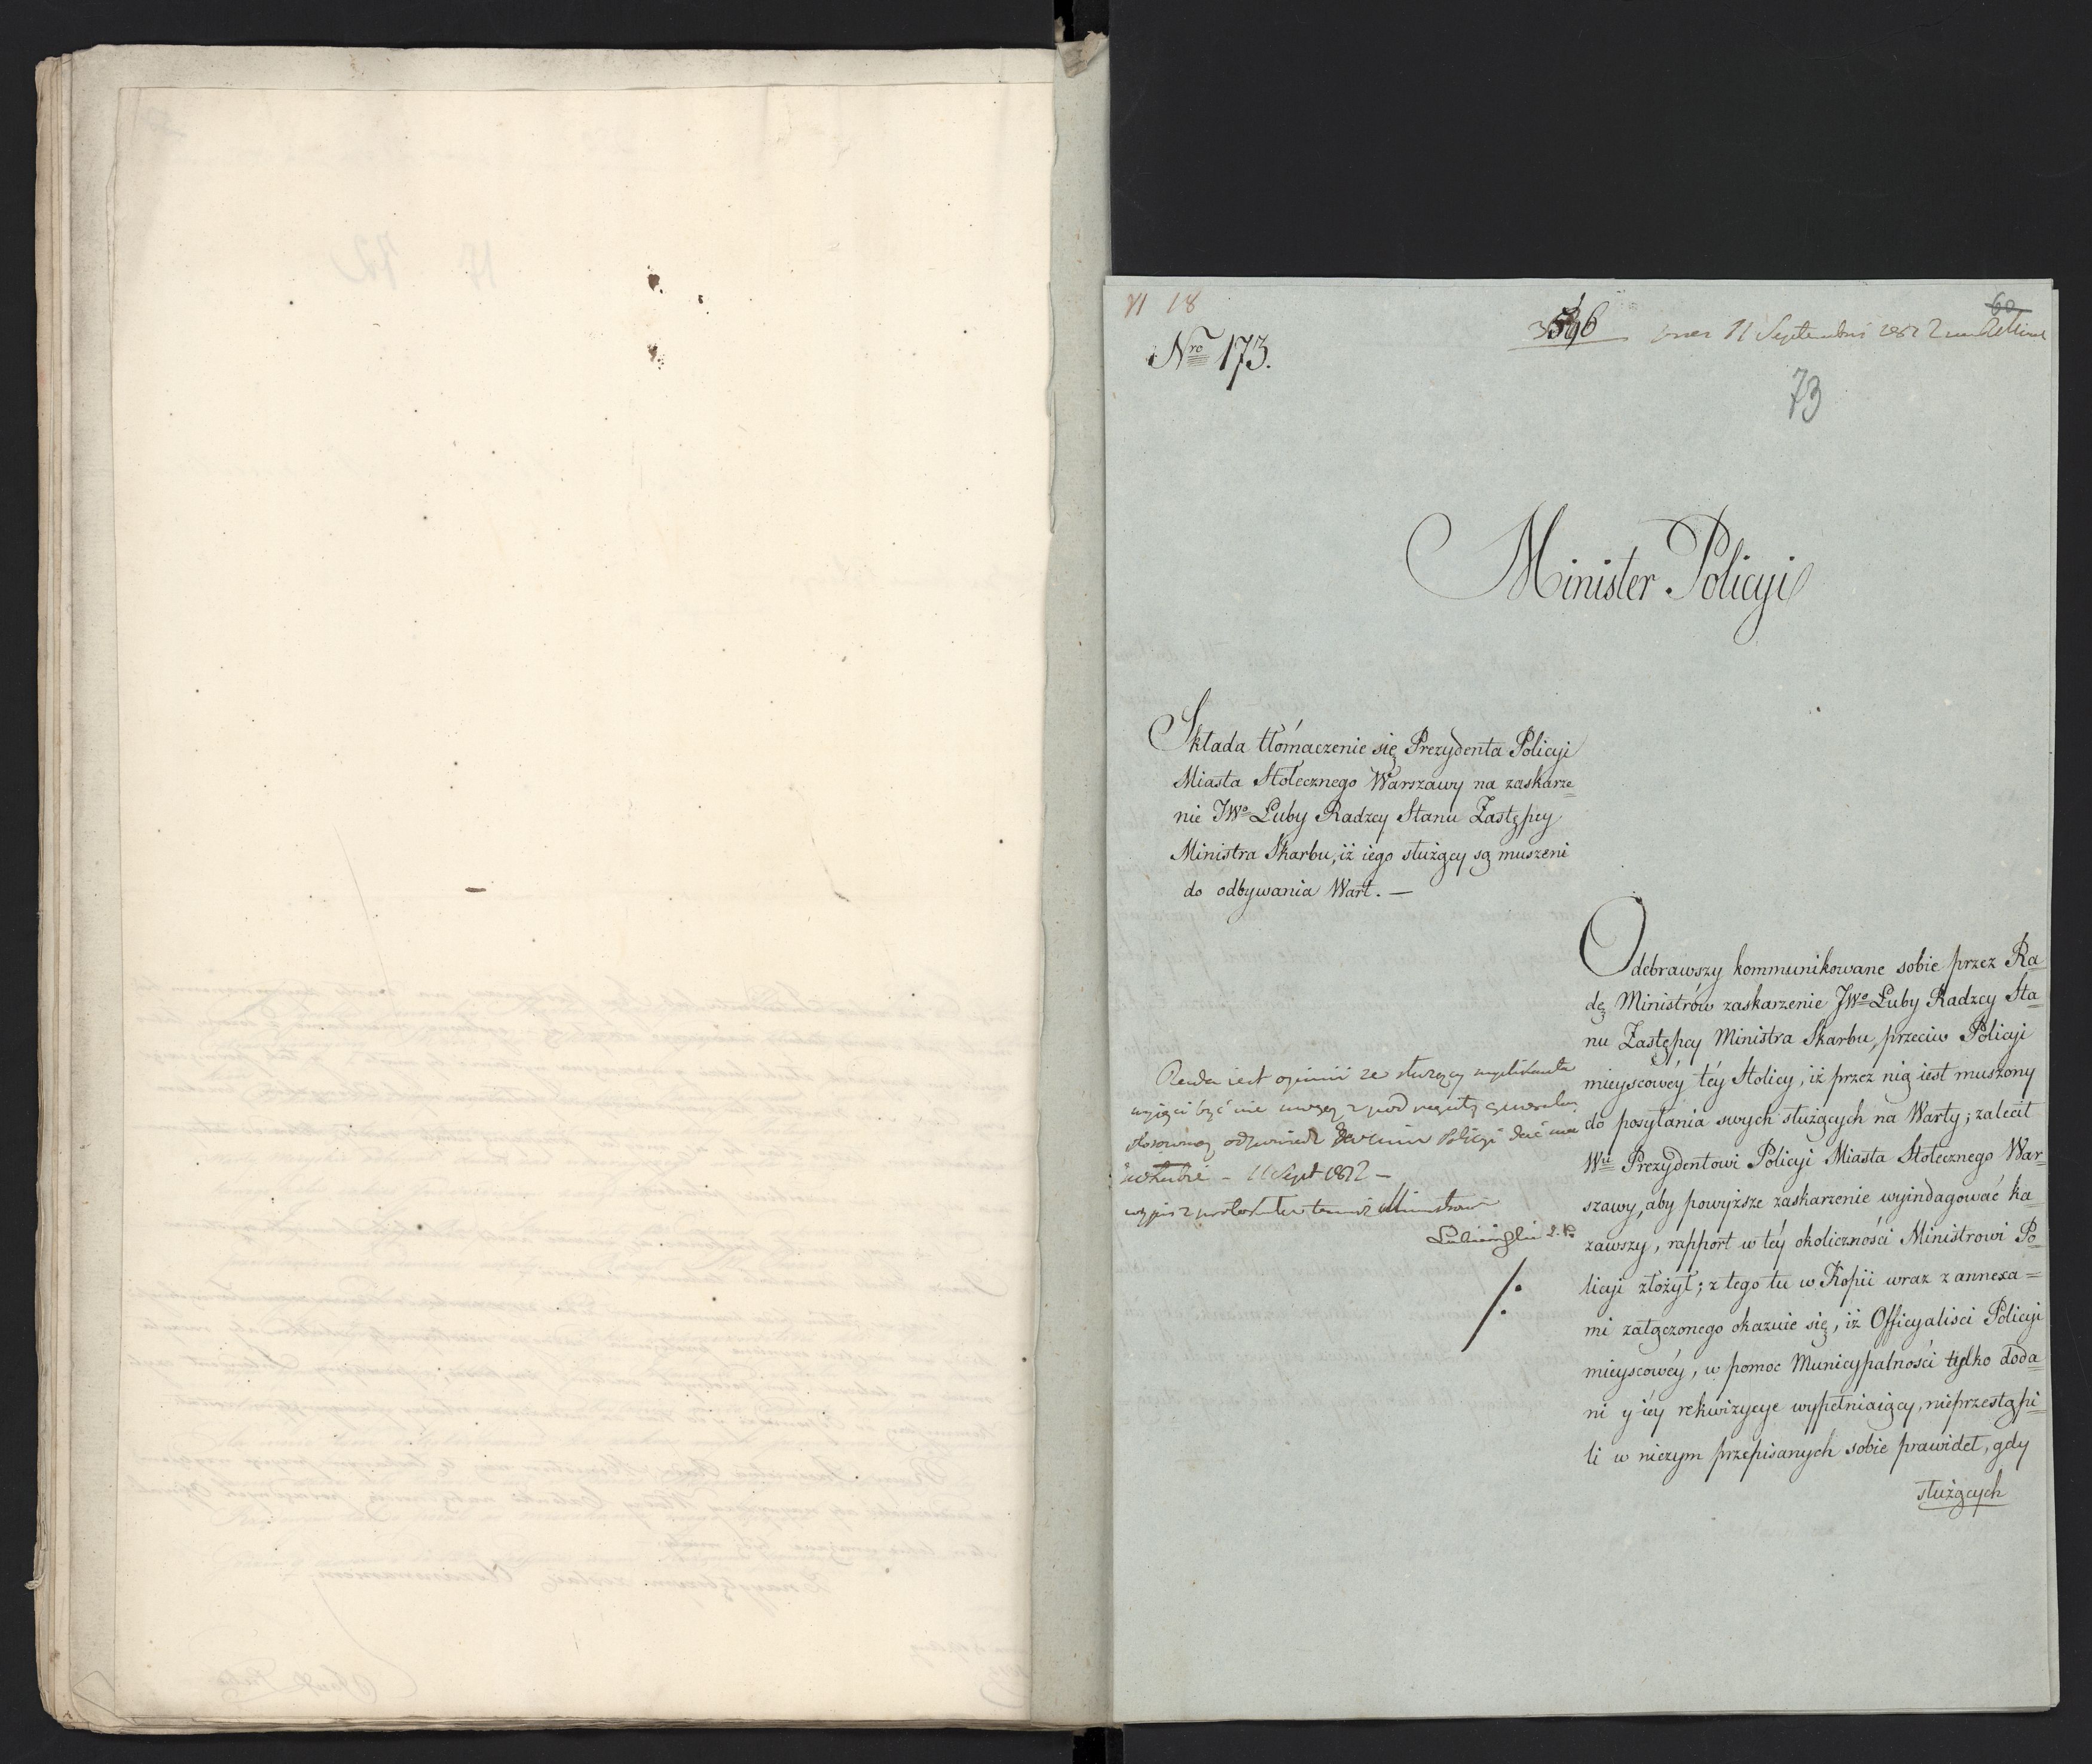 VI 18
Nro 173.
596
11 Septembris 1812
60
73
Minister Policyi
Składa tłómaczenie się Prezydenta Policyi
Miasta Stołecznego Warszawy na zaskarże=
nie JWo Łuby Radzcy Stanu Zastępcy
Ministra Skarbu, iż iego służący są muszeni
do odbywania Wart. —
Rada iest opinii ze służący
wyięci być nie mogą z pod reguły
stosowną odpowiedź Policyi dać
11 Sept 1812 —
wypis z protokułu
Odebrawszy kommunikowane sobie przez Ra=
dę Ministrów zaskarzenie JWo Łuby Radzcy Sta=
nu Zastępcy Ministra Skarbu, przeciw Policyi
mieyscowéy téy Stolicy, iż przez nią iest muszony
do posyłania swych służących na Warty; zalecił
Wu Prezydentowi Policyi Miasta Stołecznego War=
szawy, aby powyższe zaskarzenie wyindagować ka=
zawszy, rapport w téy okoliczności Ministrowi Po=
licyi złożył; z tego tu w Kopii wraz z annexa=
mi załączonego okazuie się, iż Officyalisci Policyi
mieyscowéy, w pomoc Municypalności tylko doda=
ni y iéy rekwizycye wypełniaiący, nieprzestąpi=
li w niczym przepisanych sobie prawideł, gdy
służących